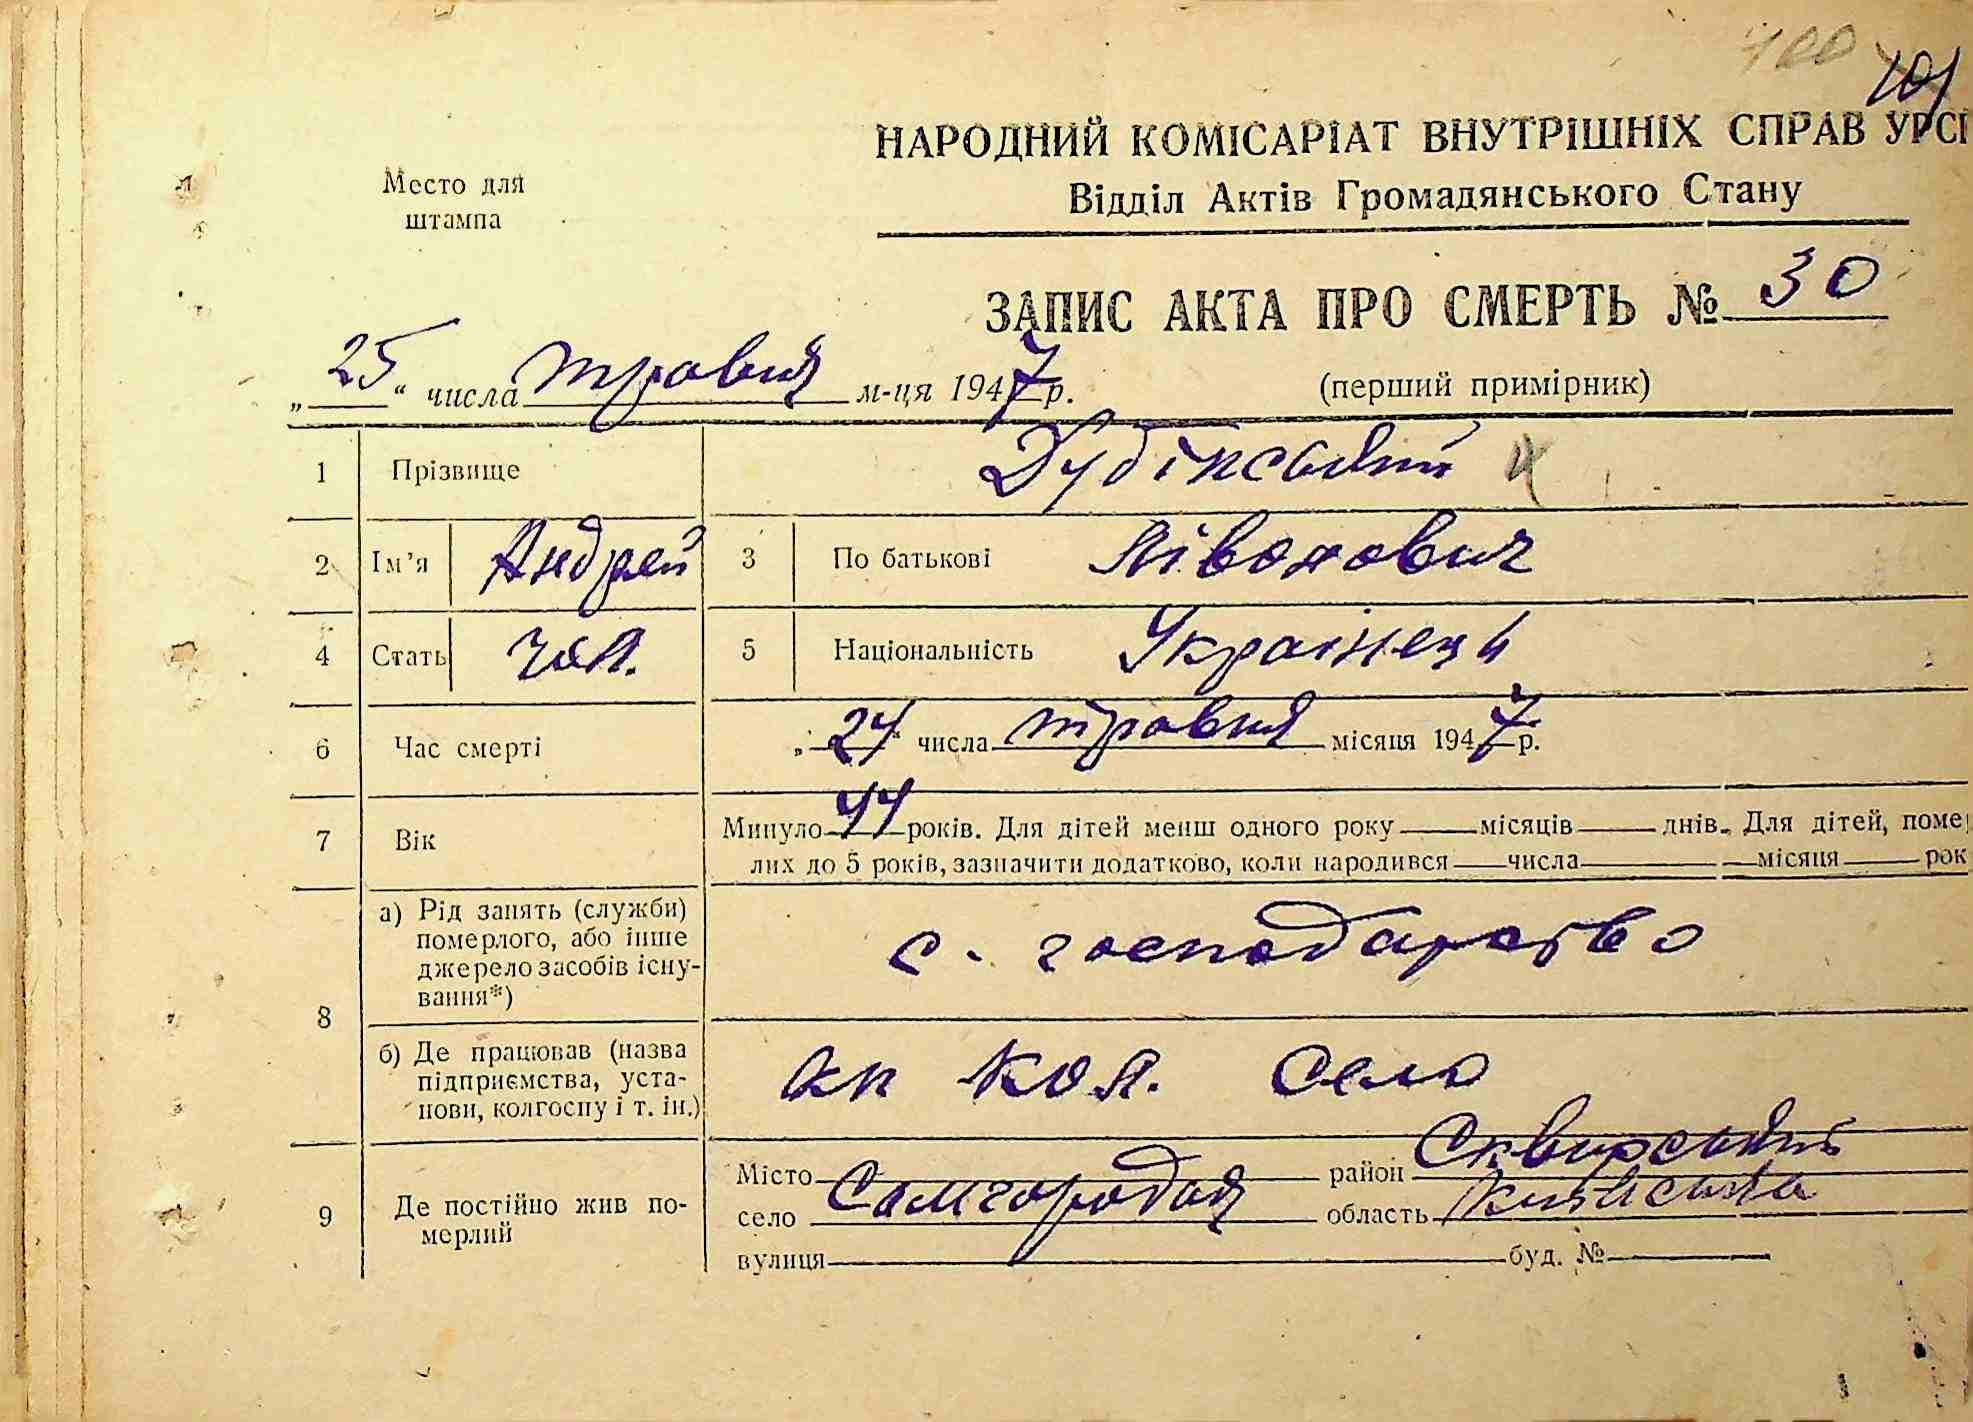 100
101
НАРОДНИЙ КОМІСАРІАТ ВНУТРІШНІХ СПРАВ УРСР
Відділ Актів Громадянського Стану
Место для
штампа
ЗАПИС АКТА ПРО СМЕРТЬ № 30
„25“ числа травня м-ця 1947 р.
(перший примірник)
1 Прізвище Дубінський
2 Ім'я Андрей 3 По батькові Лівонович
4 Стать чол. 5 Національність Українець
6 Час смерті „24“ числа травня місяця 1947 р.
7 Вік Минуло 44 років. Для дітей менш одного року місяців днів. Для дітей, помер
лих до 5 років, зазначити додатково, коли народився числа місяця рок
8 а) Рід занять (служби)
померлого, або інше
джерело засобів існу-
вання*)
с. господарство
б) Де працював (назва
підприємства, уста-
нови, колгоспу і т. ін.)
кол. село
9 Де постійно жив по-
мерлий
Місто район Сквирський
село Самгородня область Київська
вулиця буд. №